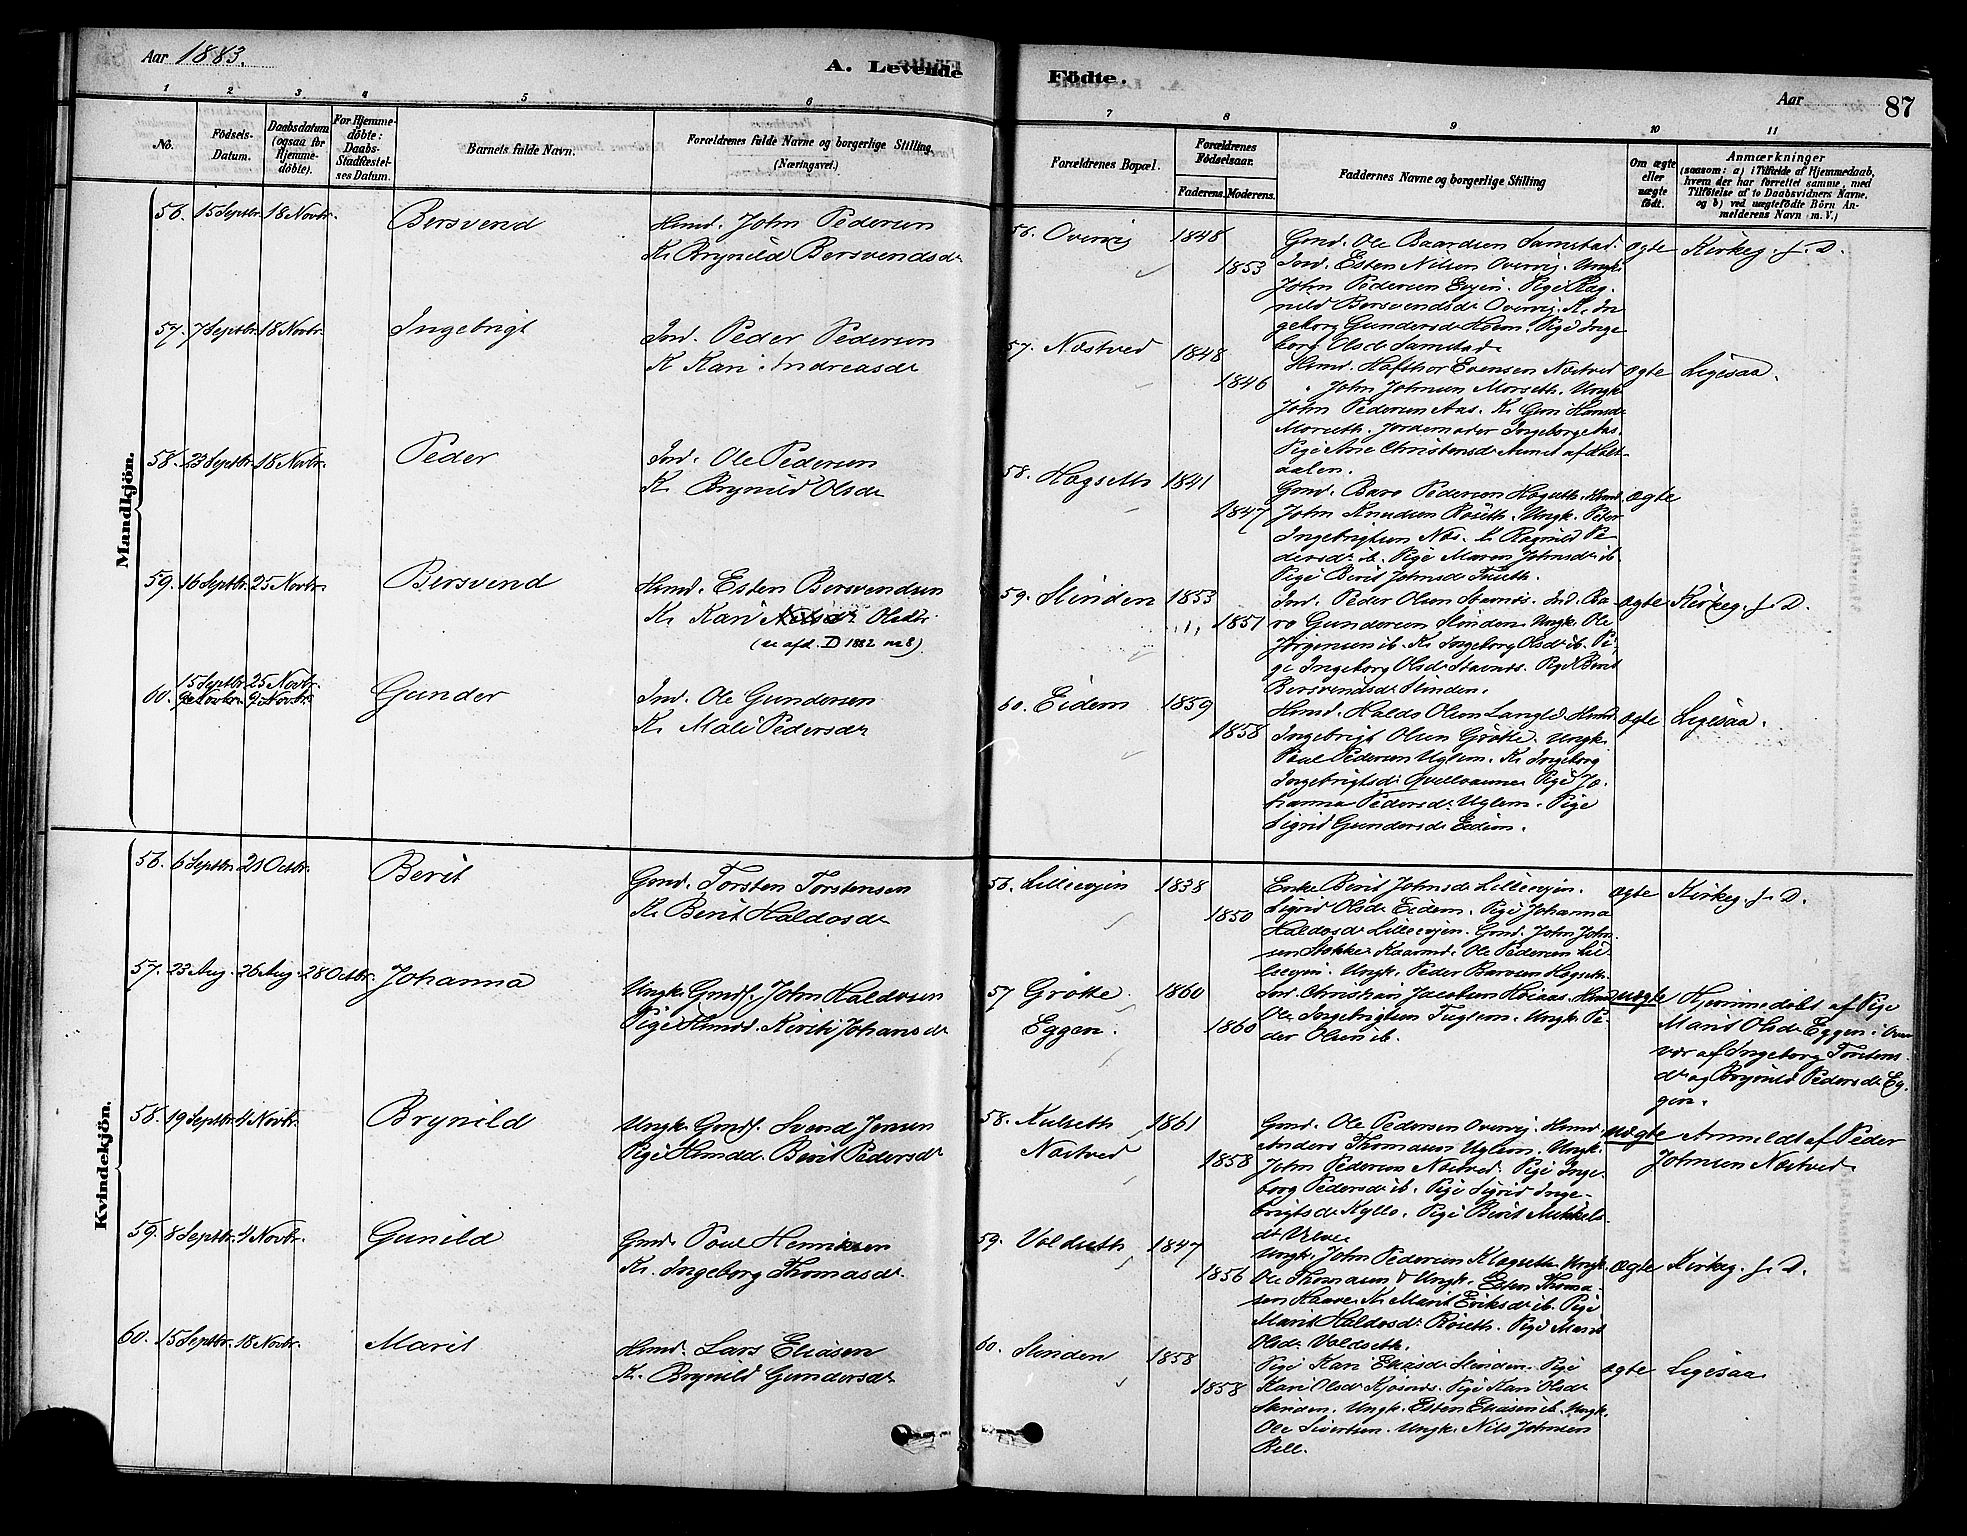 Aar 1883.
A. Levende Födte.
Aar
87
1 2 3. 4 5 6 7 8 9 10 11
No.
Födsels-Datum.
Daabsdatum (ogsaa for Hjemmedöbte).
For Hjemmedöbte: Daabs-Stadfæstelses Datum.
Barnets fulde Navn.
Forældrenes fulde Navne og borgerlige Stilling. (Næringsvei.)
Forældrenes Bopæl.
Forældrenes Födselsaar.
Faderens. Moderens.
Faddernes Navne og borgerlige Stilling
Om ægte eller uægte födt.
Anmærkninger
(saasom: a) i Tilfælde af Hjemmedaab, hvem der har forrettet samme, med Tilföielse af to Daabsvidners Navne, og b) ved uægtefödte Börn Anmelderens Navn m. V.)
Mandkjön.
56. 15 Septbr. 18 Novbr. Bersvend
Hmd. John Pedersen
K. Brynild Bersvendsdr
56. Overvig 1848 1853
Gmd. Ole Baardsen Samstad.
Ind. Esten Nilsen Overvig. Ungk.
John Pedersen Evjen. Pige Rag-
nild Bersvendsdr Overvig. K. In-
geborg Gundersdr Hoem. Pige Inge
borg Olsdr Samstad.
ægte Kirkeg. f. D.
57. 7 Septbr. 18 Novbr. Ingebrigt
Ind. Peder Pedersen
K Kari Andreasdr
57. Næstved 1848 1846
Hmd. Hafthor Evensen Næstved
" John Johnsen Morseth. Ungk
John Pedersen Aas. K. Guri Hansdr
Morseth. Jordemoder Ingeborg Aas.
Pige Ane Christensdr Aunet af Hol-
aalen.
ægte Ligesaa.
58. 23 Septbr. 18 Novbr. Peder
Ind. Ole Pedersen
K. Brynild Olsdr
58. Hogseth 1841 1847
Gmd. Baro Pedersen Hogseth. Hmd
John Knudsen Röseth. Ungk. Peter
Ingebrigtsen Næs. K Ragnild Pe
dersdr ib. Pige Maren Johnsdr ib
Pige Berit Johnsdr Tuseth.
ægte
59. 16 Septbr. 25 Novbr. Bersvend
Hmd. Esten Bersvendsen
K. Kari Nilsdr Olsdr
(se afd. D 1882 no 8)
59. Slinden 1853 1851
Ind. Peder Olsen Stamnæs. Ind. Ba-
ro Gundersen Slinden. Ungk. Ole
Jörgensen ib. K. Ingeborg Olsdr ib. Pi-
ge Ingeborg Olsdr Stamnæs. Pige Berit
Bersvendsdr Slinden.
ægte Kirkeg. f. D.
60. 15 Septbr 25 Novbr. Gunder
Ind. Ole Gundersen
K. Mali Pedersdr
60. Eidem 1859 1858
Hmd. Haldo Olsen Langli. Hmd
Ingebrigt Olsen Grötte. Ungk.
Poul Pedersen Uglem. K. Ingeborg
Ingebrigtsdr Qvellosaune Pige Jo-
hanna Pedersdr Uglem. Pige
Sigrid Gundersdr Eidem.
ægte Ligesaa.
Kvindekjön.
56. 6 Septbr. 21 Octbr. Berit
Gmd. Torsten Torstensen
K. Berit Haldosdr
56. Lilleevjen 1838 1850
Enke Berit Johnsdr Lilleevjen.
Sigrid Olsdr Eidem. Pige Johanna
Haldosdr Lilleevjen. Gmd. John John
sen Stokke Kaarmd. Ole Pedersen Lil-
leevjen. Ungk. Peder Barosen Hogseth.
ægte Kirkeg. f. D.
57. 23 Aug. 26 Aug. 28 Octbr. Johanna
Ungk. Gmds. John Haldosen
Pige Hmds. Kirsti Johansdr
57 Grötte. Eggen. 1860 1860
Ind. Christian Jacobsen Höiaas. Hmd
Ole Ingebrigtsen Fuglem. Ungk. Pe-
der Olsen ib.
uægte
Hjemmedöbt af Pige
Marit Olsdr Eggen i Over
vær af Ingeborg Torstens-
dr og Brynild Pedersdr Eg-
gen.
58. 19 Septbr. 4 Novbr. Brynild
Ungk. Gmds. Svend Jensen
Pige Hmdd. Berit Pedersdr
58. Kulseth Næstved 1861 1858
Gmd. Ole Pedersen Overvig. Hmd.
Anders Thomasen Uglem. Ungk.
John Pedersen Næstved. Pige Inge-
borg Pedersdr ib. Pige Sigrid Inge-
brigtsdr Kyllo. Pige Berit Mikkels-
dr Velve.
uægte
Anmeldt af Peder
Johnsen Næstved.
59. 8 Septbr. 4 Novbr. Gunild
Gmd. Poul Henriksen
K. Ingeborg Thomasdr
59. Voldseth 1847 1856
Ungk. John Pedersen Klegseth Ungk.
Ole Thomasen & Ungk. Esten Thoma-
sen Haave. K. Marit Eriksdr ib. Pige
Marit Haldosdr Röseth. Pige Marit
Olsdr Voldseth.
ægte Kirkeg. f. D.
60. 15 Septbr. 18 Novbr. Marit
Hmd. Lars Eliasen
K. Brynild Gundersdr
60. Slinden 1858 1858
Pige Kari Eliasdr Slinden. Pige
Kari Olsdr Kjösnæs. Pige Kari Olsdr
Slinden. Ungk. Esten Eliasen ib. Ungk.
Ole Sivertsen. Ungk. Nils Johnsen
Rell.
ægte Ligesaa